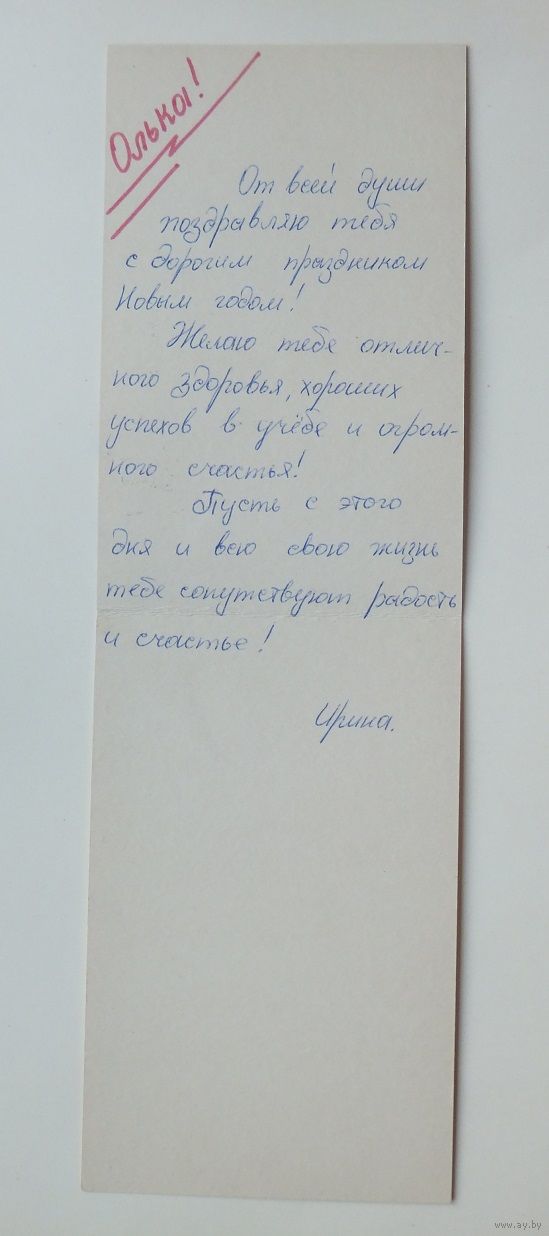 Олька!
От всей души
поздравляю тебя
с дорогим праздником
Новым годом!
Желаю тебе отлич-
ного здоровья, хороших
успехов в учёбе и огром-
ного счастья!
Пусть с этого
дня и всю свою жизнь
тебе сопутствуют радость
и счастье!
Ирина.
www.ay.by